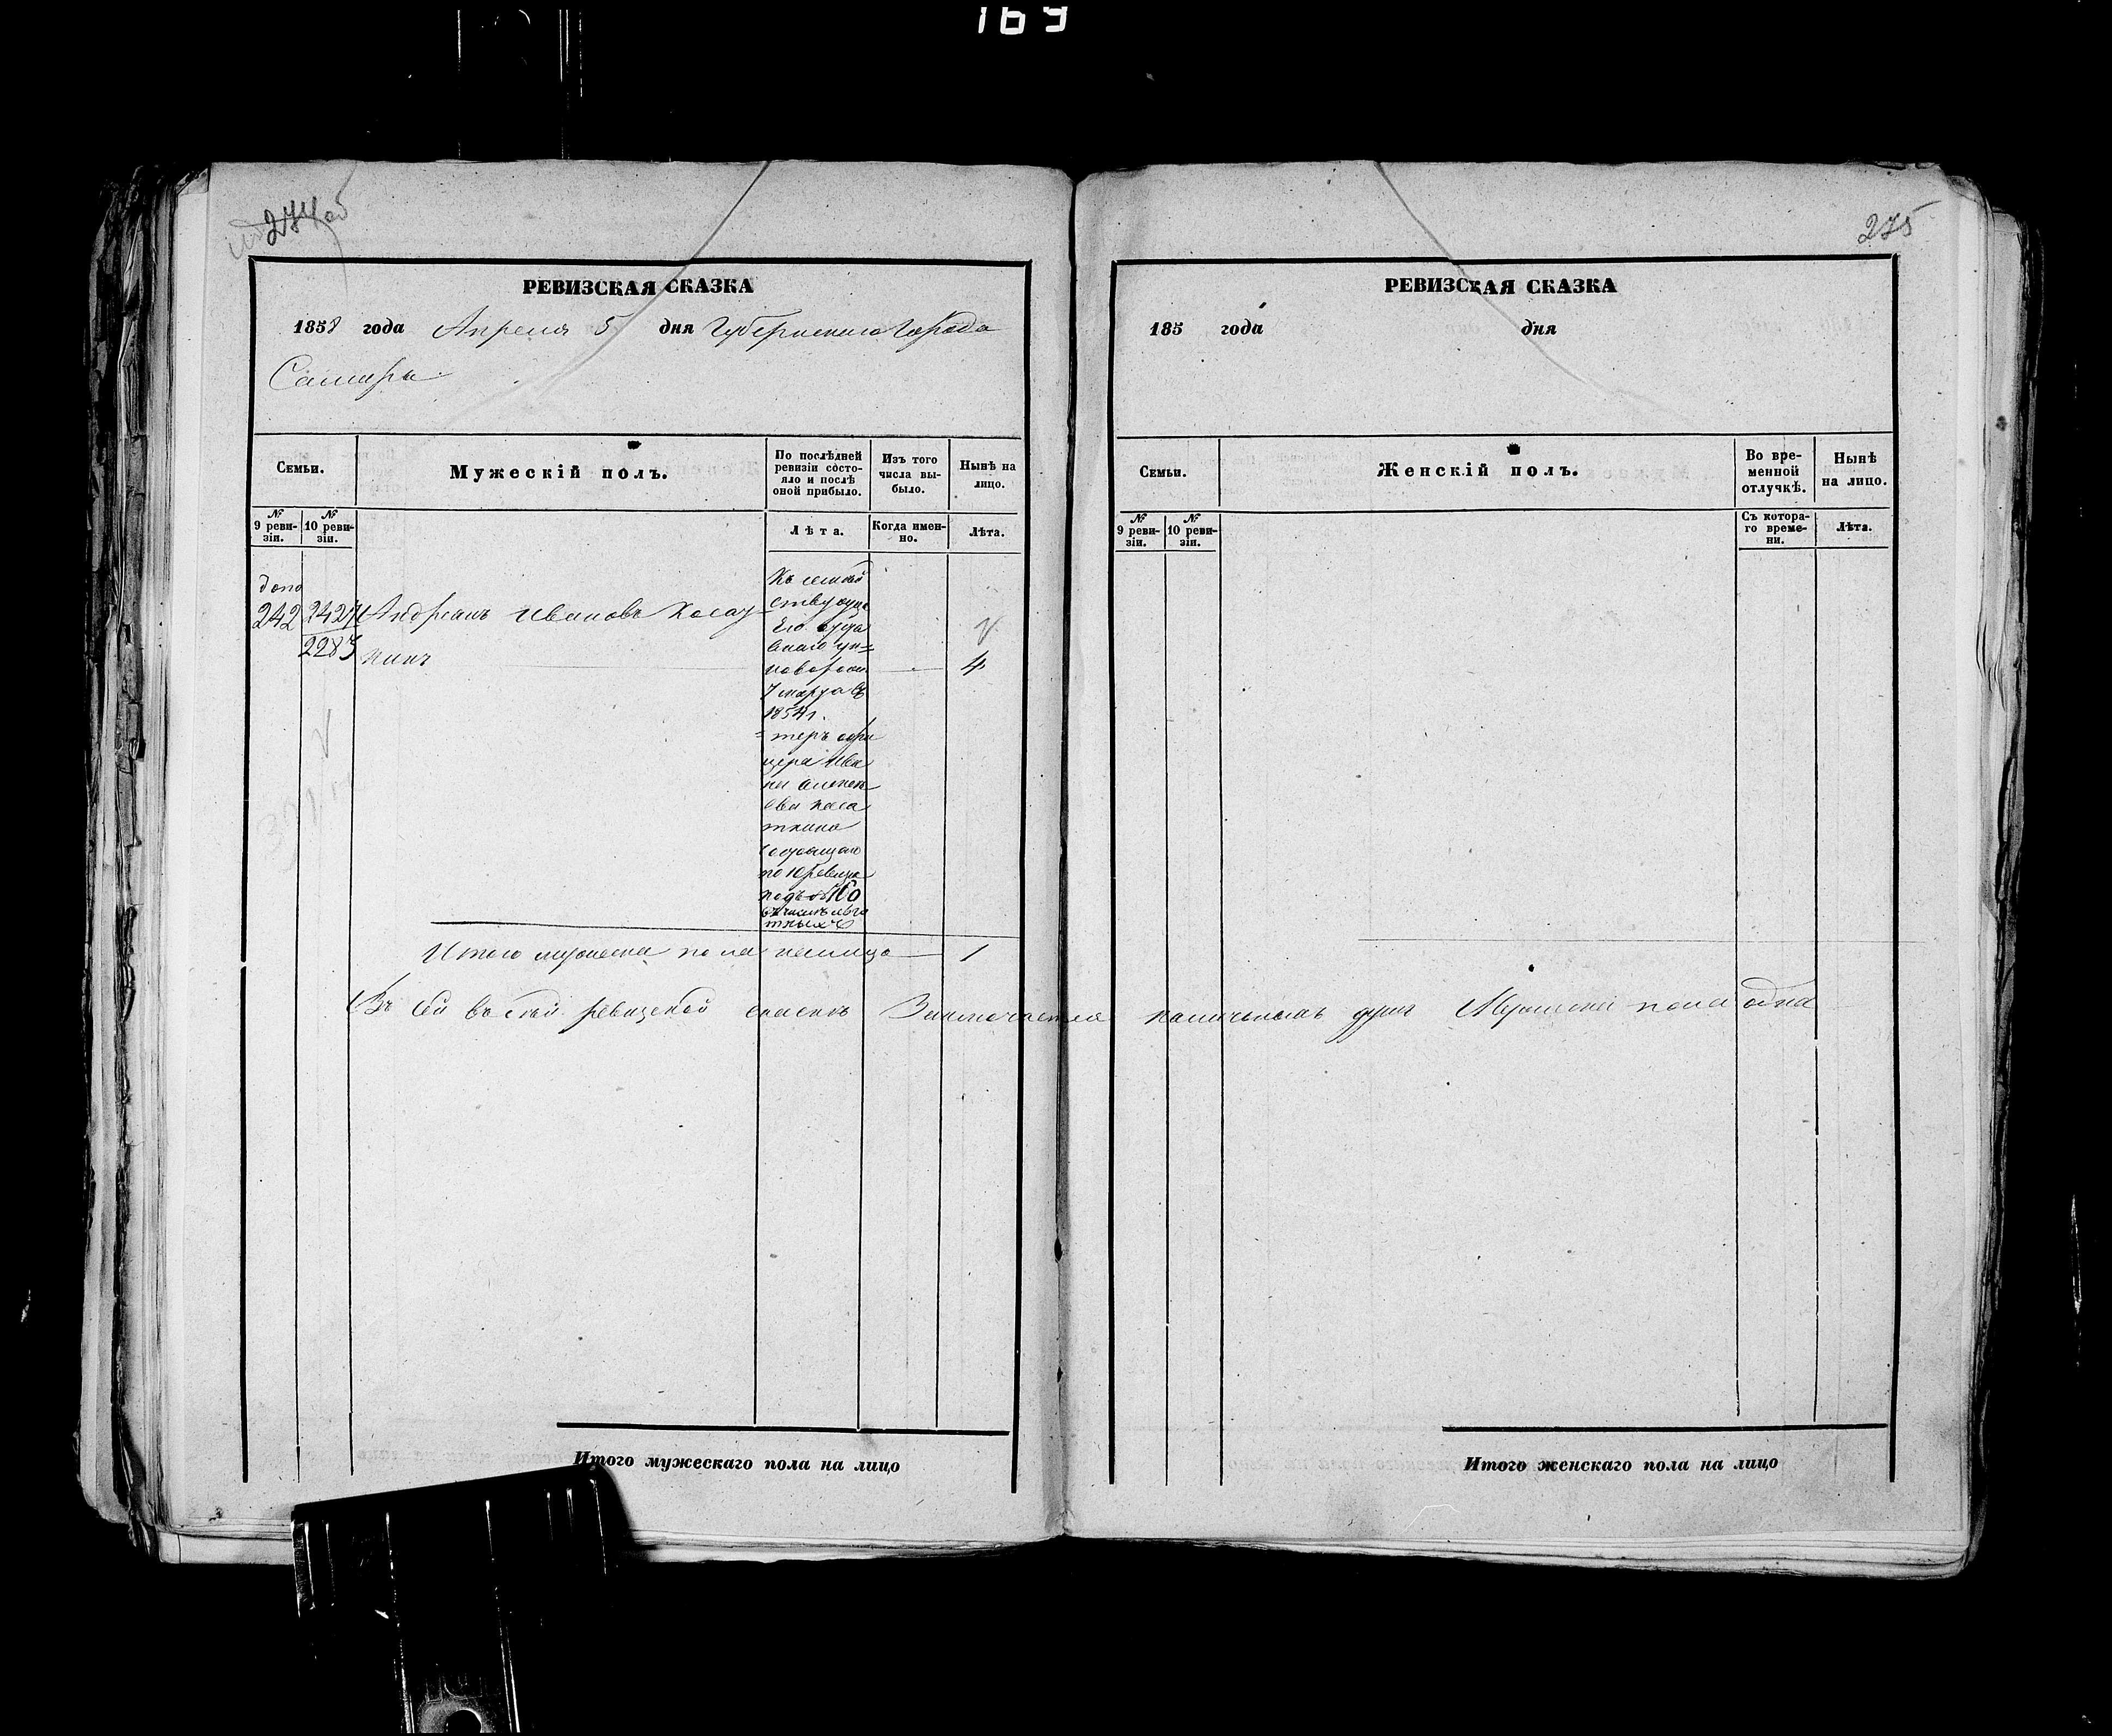 169
274об
275
РЕВИЗСКАЯ СКАЗКА
1858 года Апреля 5 дня Губернскаго Города
Самары
Семьи.
Мужескій полъ.
По послѣдней ревизіи состояло и послѣ оной прибыло.
Изъ того числа выбыло.
Нынѣ на лицо.
№ 9 ревизіи.
№ 10 ревизіи.
Лѣта.
Когда именно.
Лѣта.
допо
242
2427
2283
Андреянъ Ивановъ Косат
кинъ
4
7 марта въ
1854 г.
=теръ офи
цера Ива
на
ева Коса
ткина
по 10 ревизіи
подъ № 160
Итого мужеска пола налицо 1
Въ сей ревизской сказкѣ Заключается наличныхъ душъ Мужеска пола одна
РЕВИЗСКАЯ СКАЗКА
185 года дня
Семьи.
Женскій полъ.
Во временной отлучкѣ.
Нынѣ на лицо.
№ 9 ревизіи.
№ 10 ревизіи.
Съ котораго времени.
Лѣта.
Итого мужескаго пола на лицо
Итого женскаго пола на лицо